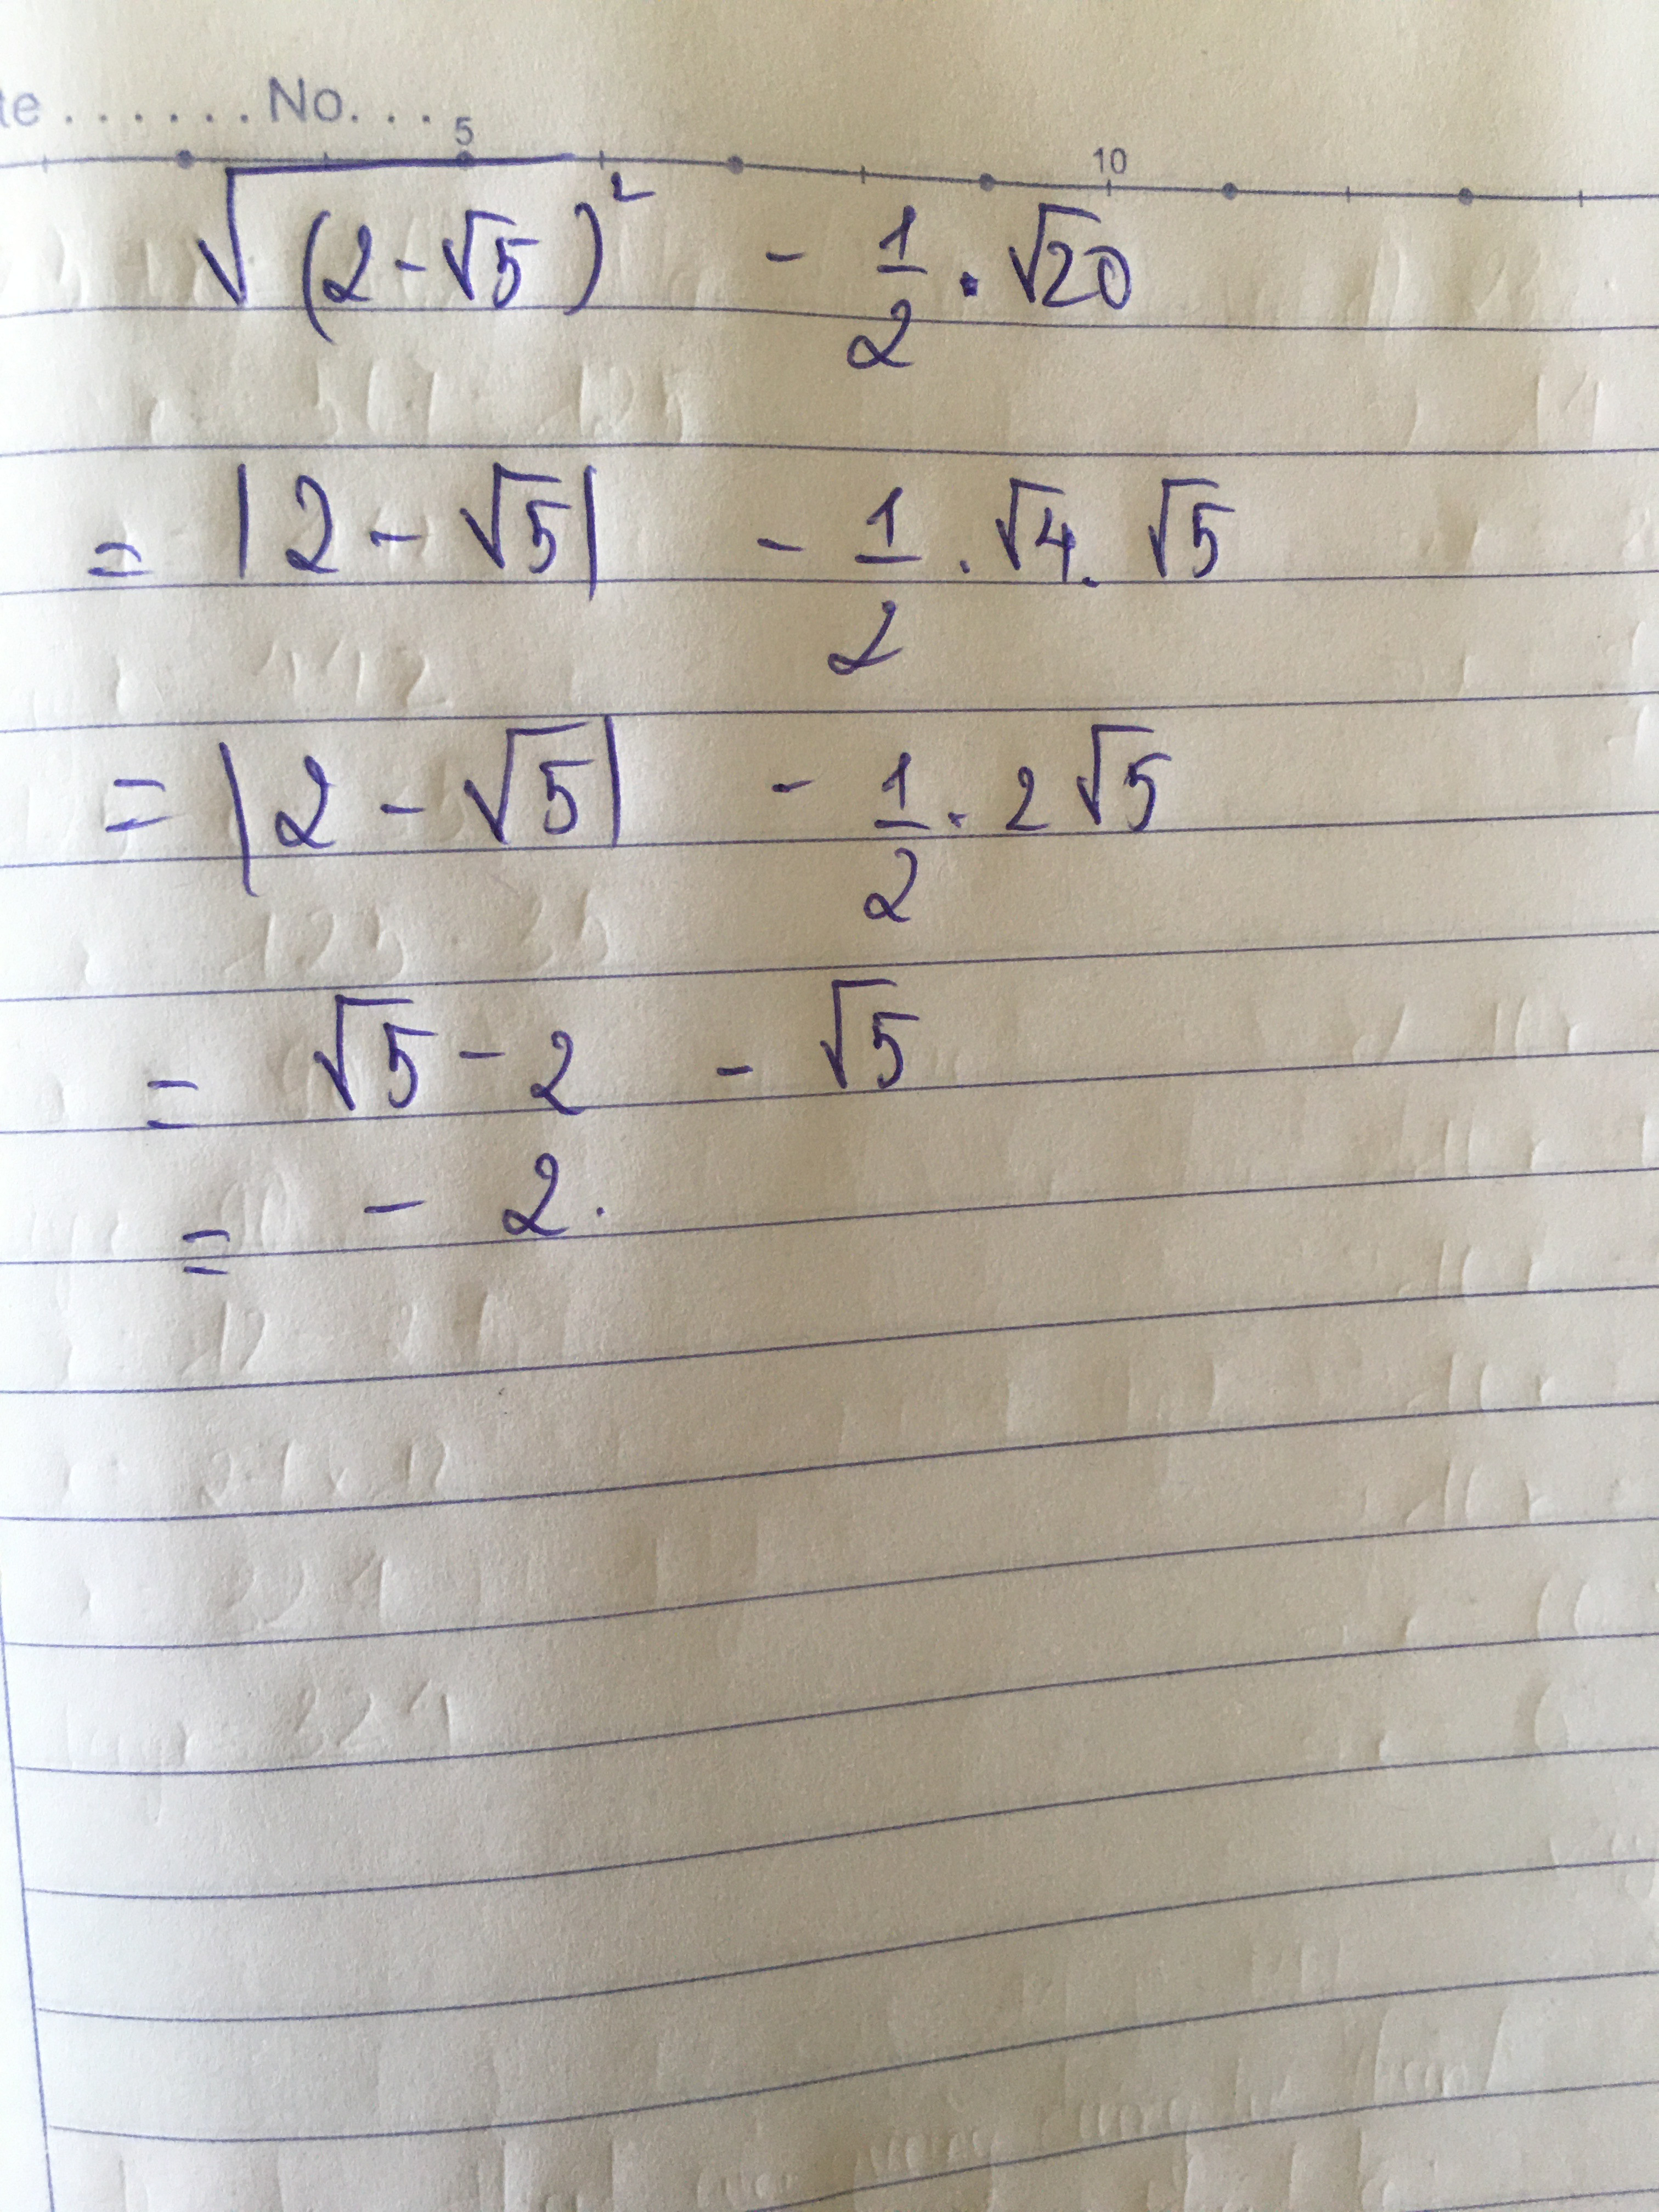 te ....... No. ...
5 10
√(2-√5)² - 1/2 . √20
= |2 - √5| - 1/2 . √4 . √5
= |2 - √5| - 1/2 . 2√5
= √5 - 2 - √5
= - 2.